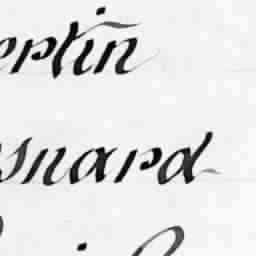 ertin
snard